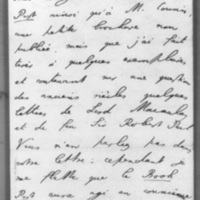 Post ainsi qu'à M. Cousin,
une petite brochure non
publiée, mais que j'ai fait
tirer à quelques exemplaires,
et contenant sur une question
des anciens siècles quelques
lettres de Lord Macaulay
et de feu Sir Robert Peel
Vous n'en parlez pas dans
votre lettre: cependant je
me flatte que le Book
Post aura agi en conscience